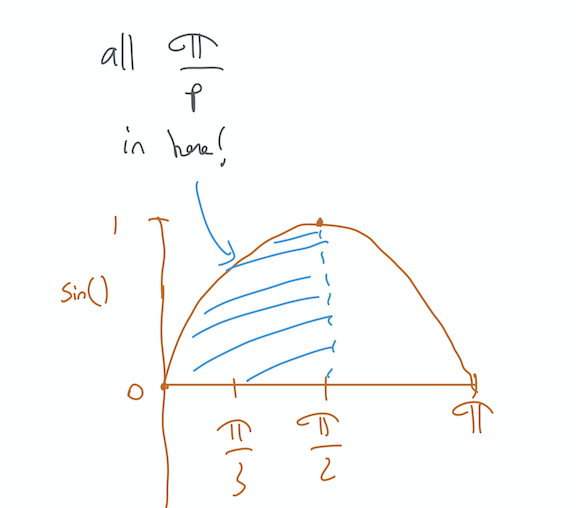 all π/p
in here!
1
sin()
0
π/3
π/2
π